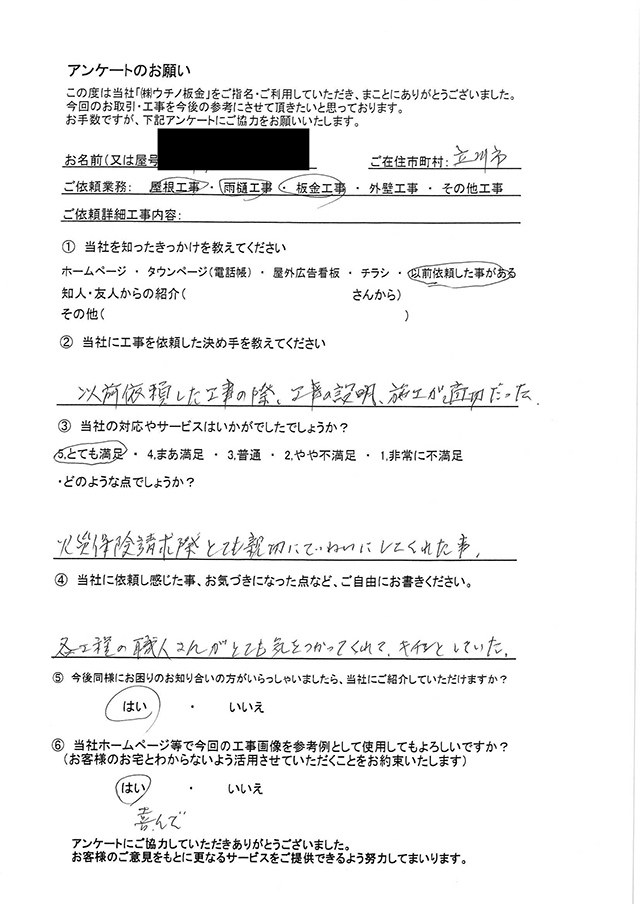 アンケートのお願い
この度は当社「㈱ウチノ板金」をご指名・ご利用していただき、まことにありがとうございました。
今回のお取引・工事を今後の参考にさせて頂きたいと思っております。
お手数ですが、下記アンケートにご協力をお願いいたします。
お名前(又は屋号 ご在住市町村: 立川市
ご依頼業務: 屋根工事 ・ 雨樋工事 ・ 板金工事 ・ 外壁工事 ・ その他工事
ご依頼詳細工事内容:
① 当社を知ったきっかけを教えてください
ホームページ ・ タウンページ(電話帳) ・ 屋外広告看板 ・ チラシ ・ 以前依頼した事がある
知人・友人からの紹介( さんから)
その他( )
② 当社に工事を依頼した決め手を教えてください
以前依頼した工事の際、工事の説明、施工が適切だった.
③ 当社の対応やサービスはいかがでしたでしょうか?
5,とても満足 ・ 4,まあ満足 ・ 3,普通 ・ 2,やや不満足 ・ 1,非常に不満足
・どのような点でしょうか?
火災保険請求際とても親切にていねいにしてくれた事。
④ 当社に依頼し感じた事、お気づきになった点など、ご自由にお書きください。
各工程の職人さんがとても気をつかってくれて、キチンとしていた。
⑤ 今後同様にお困りのお知り合いの方がいらっしゃいましたら、当社にご紹介していただけますか?
はい ・ いいえ
⑥ 当社ホームページ等で今回の工事画像を参考例として使用してもよろしいですか?
(お客様のお宅とわからないよう活用させていただくことをお約束いたします)
はい ・ いいえ
喜んで
アンケートにご協力していただきありがとうございました。
お客様のご意見をもとに更なるサービスをご提供できるよう努力してまいります。